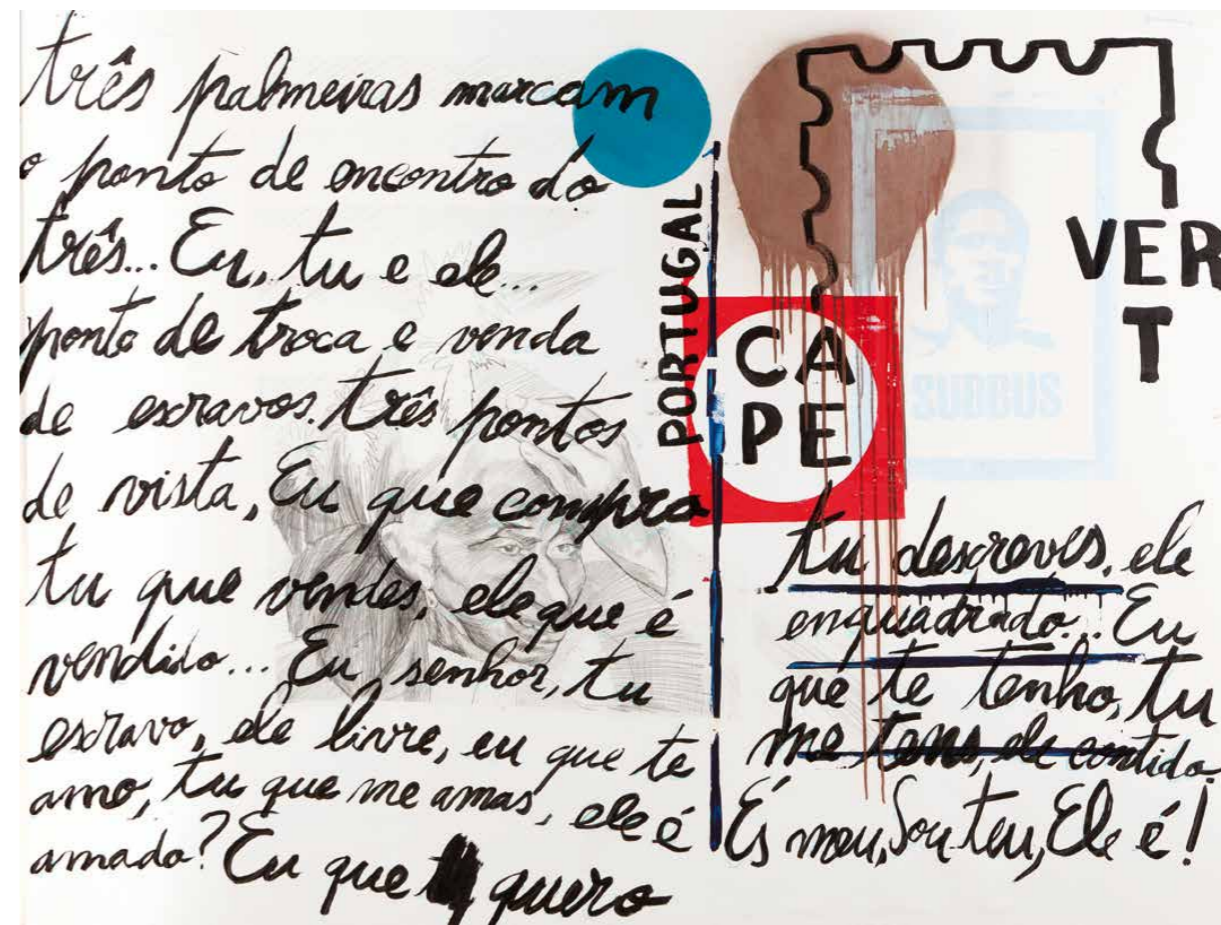 três palmeiras marcam
o ponto de encontro do
três... Eu, tu e ele...
ponto de troca e venda
de escravos. três pontos
de vista, Eu que compra
tu que vendes, ele que é
vendido... Eu, senhor, tu
escravo, ele livre, eu que te
amo, tu que me amas, ele é
amado? Eu que quero
PORTUGAL
CA
PE
VER
T
SUDBUS
tu descreves, ele
enquadrado... Eu
que te tenho, tu
me tens, ele contido.
És meu, Sou teu, Ele é!